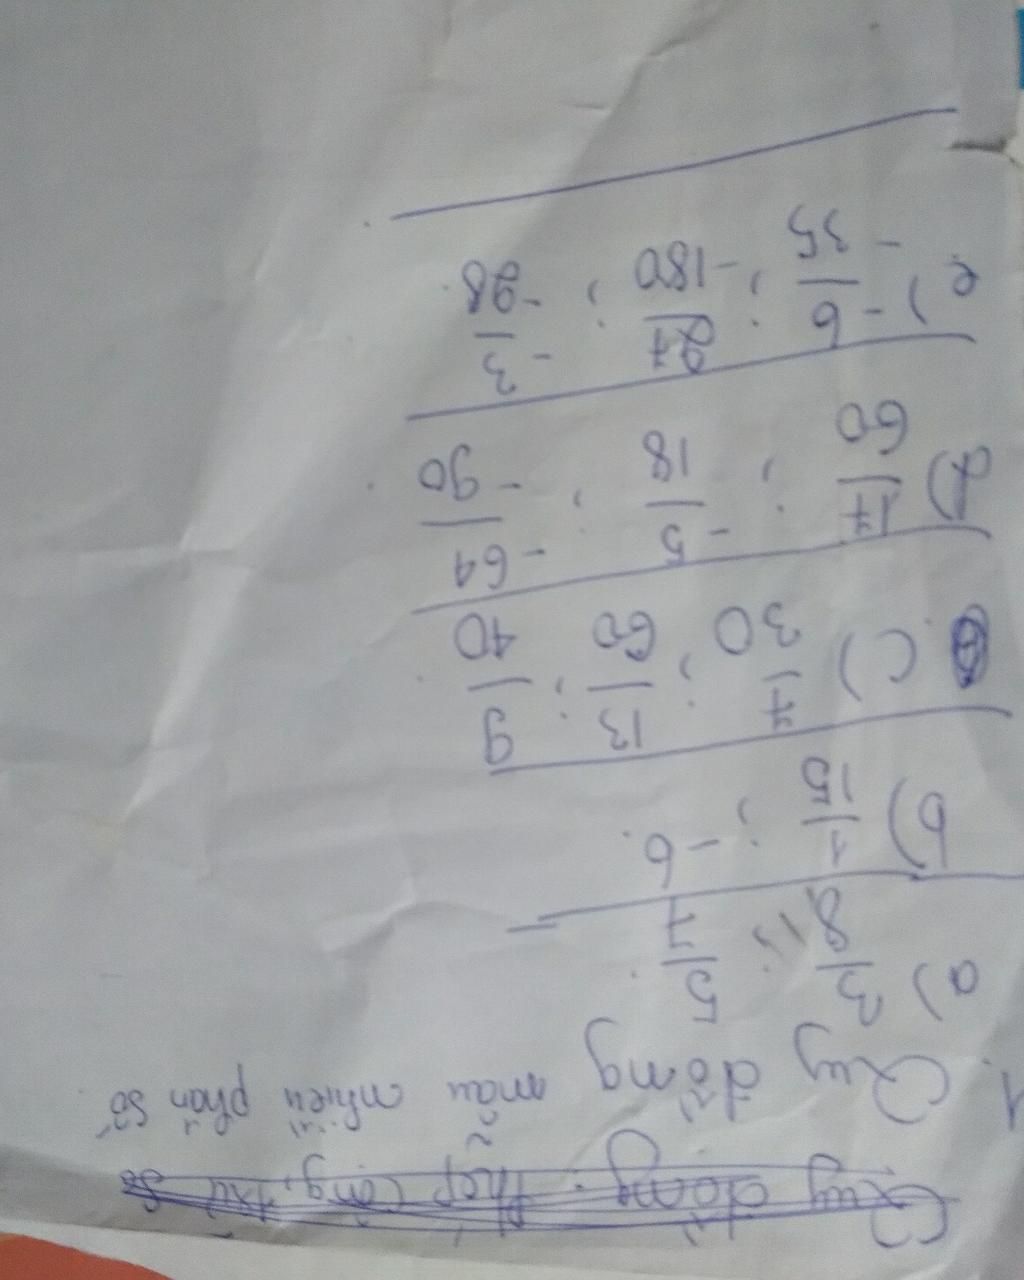 Quy đồng. Phép cộng, trừ
1. Quy đồng mẫu nhiều phân số.
a) 3/8 ; 5/7.
b) 1/15 ; -6.
c) 7/30 ; 13/60 ; 9/40.
d) 17/60 ; -5/18 ; -64/-90.
e) -6/-35 ; 27/-180 ; -3/-28.